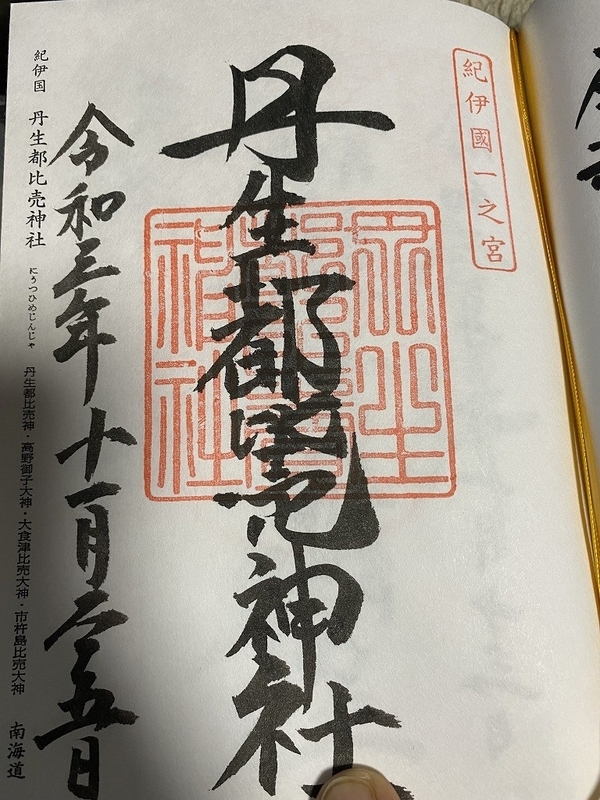 紀伊國一之宮
丹生都比売神社
丹生都比賣神社
令和三年十一月二十五日
紀伊国 丹生都比売神社 にうつひめじんじゃ 丹生都比売神・高野御子大神・大食津比売大神・市杵島比売大神 南海道